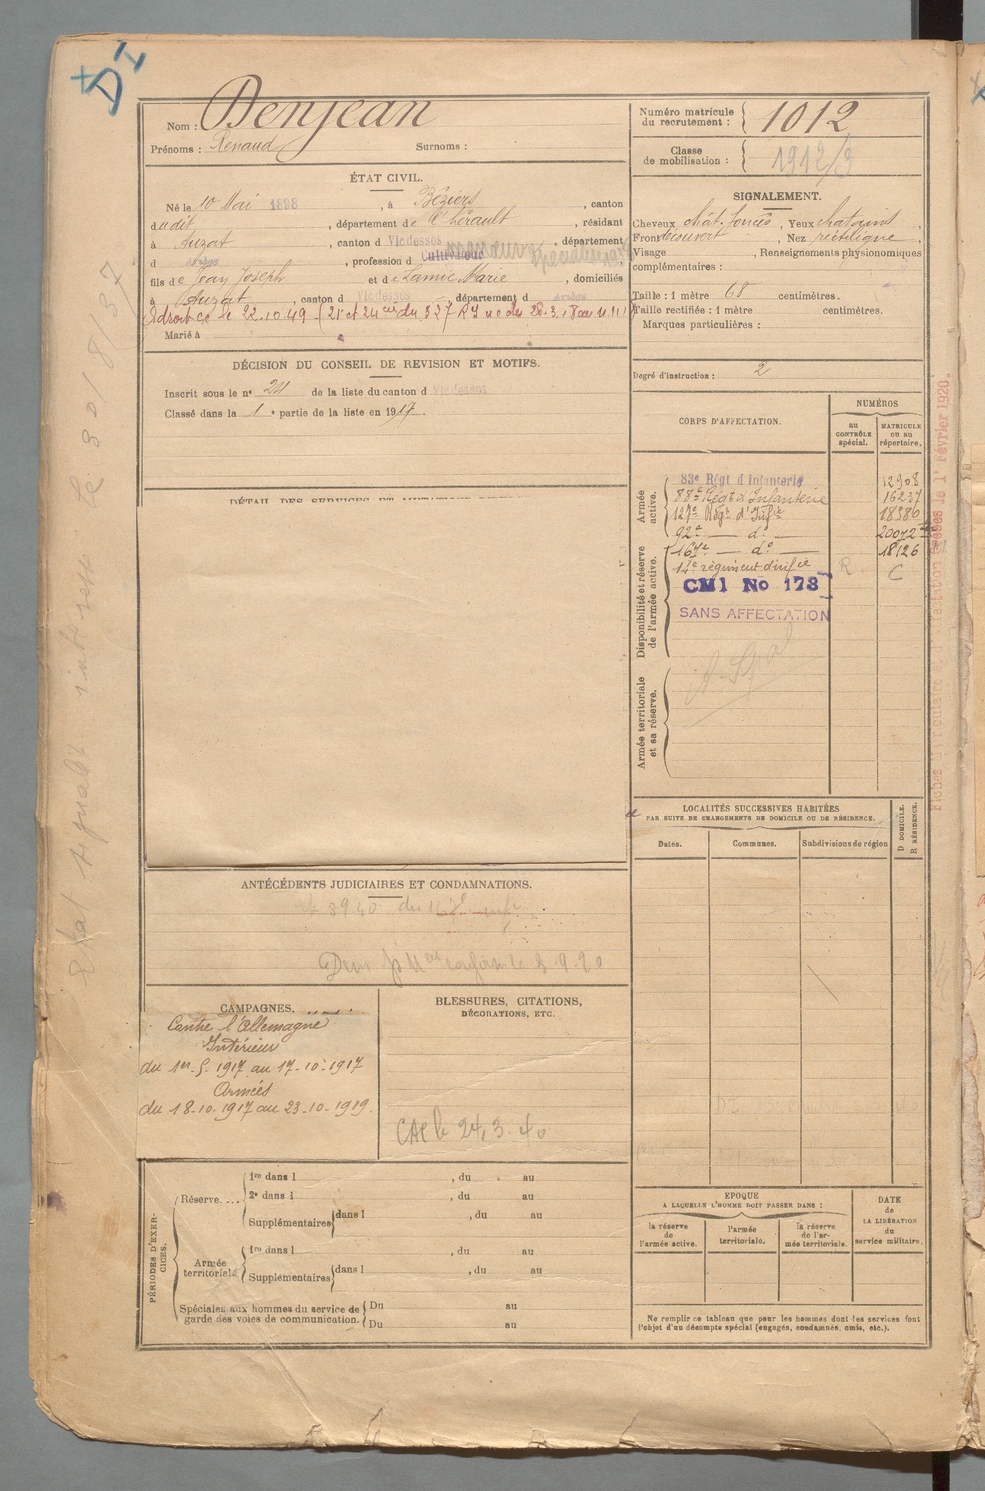 D I
Nom : Denjean
Prénoms : Renaud Surnoms :
Numéro matricule du recrutement : 1012
Classe de mobilisation : 1912/3
ÉTAT CIVIL.
Né le 10 Mai 1898, à Béziers, canton
dudit, département de l'Hérault, résidant
à Auzat, canton d Vicdessos, département
d Ariège, profession d Cultivateur
fils de Jean Joseph et de Lamic Marie, domiciliés
à Auzat, canton d Vicdessos, département d Ariège
Marié à
SIGNALEMENT.
Cheveux chât. foncés, Yeux chatains
Front découvert, Nez rectiligne,
Visage , Renseignements physionomiques
complémentaires :
Taille : 1 mètre 68 centimètres.
Taille rectifiée : 1 mètre centimètres.
Marques particulières :
Degré d'instruction : 2
DÉCISION DU CONSEIL DE REVISION ET MOTIFS.
Inscrit sous le n° 24 de la liste du canton d Vicdessos
Classé dans la 1e partie de la liste en 1917.
DÉTAIL DES SERVICES ET
CORPS D'AFFECTATION.
NUMÉROS
au CONTRÔLE spécial.
MATRICULE ou au répertoire.
Armée active.
83e Régt d'Infanterie 12908
88e Régt d'Infanterie 16237
127e Régt d'Infie 18386
92e — d° — 20072
Disponibilité et réserve de l'armée active.
167e — d° — 18126
14e régiment d'infie R C
CMI No 173
SANS AFFECTATION
Armée territoriale et sa réserve.
LOCALITÉS SUCCESSIVES HABITÉES
PAR SUITE DE CHANGEMENTS DE DOMICILE OU DE RÉSIDENCE.
Dates. Communes. Subdivisions de région
D DOMICILE. R RÉSIDENCE.
ANTÉCÉDENTS JUDICIAIRES ET CONDAMNATIONS.
CAMPAGNES.
Contre l'Allemagne
Intérieur
du 1er-5-1917 au 17-10-1917
Armées
du 18-10-1917 au 23-10-1919.
BLESSURES, CITATIONS,
DÉCORATIONS, ETC.
24.3.40
PÉRIODES D'EXERCICES.
Réserve.... 1re dans l , du au
2e dans l , du au
Supplémentaires dans l , du au
Armée territoriale 1re dans l , du au
Supplémentaires dans l , du au
Spéciales aux hommes du service de garde des voies de communication. Du au
Du au
EPOQUE
A LAQUELLE L'HOMME DOIT PASSER DANS :
la réserve de l'armée active.
l'armée territoriale.
la réserve de l'armée territoriale.
DATE de LA LIBÉRATION du service militaire.
Ne remplir ce tableau que pour les hommes dont les services font
l'objet d'un décompte spécial (engagés, condamnés, omis, etc.).